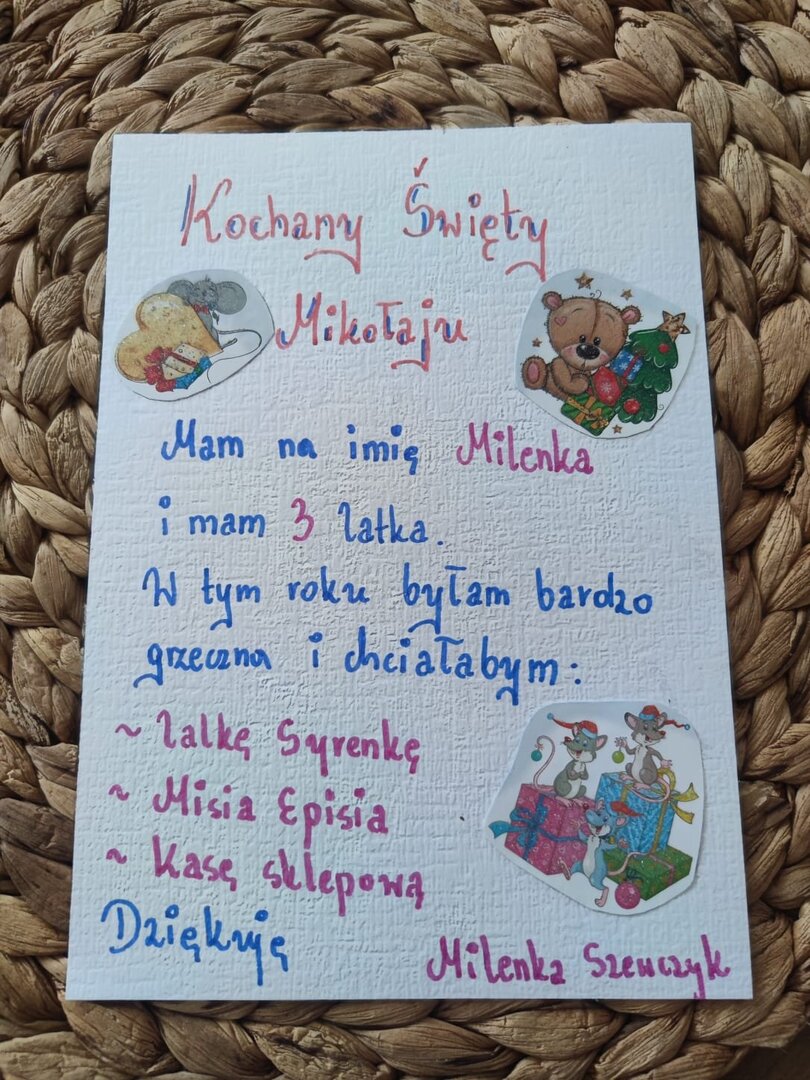 Kochany Święty
Mikołaju
Mam na imię Milenka
i mam 3 latka.
W tym roku byłam bardzo
grzeczna i chciałabym:
~ lalkę Syrenkę
~ Misia Episia
~ Kasę sklepową
Dziękuję
Milenka Szewczyk